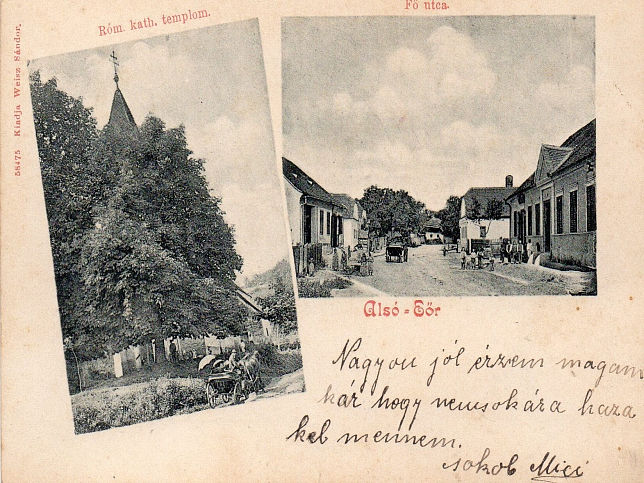 Róm. kath. templom.
Fő utca.
58475 Kiadja Weisz Sándor.
Alsó-Őr
Nagyon jól érzem magam
kár hogy nemsokára haza
kel mennem.
sokob Mici